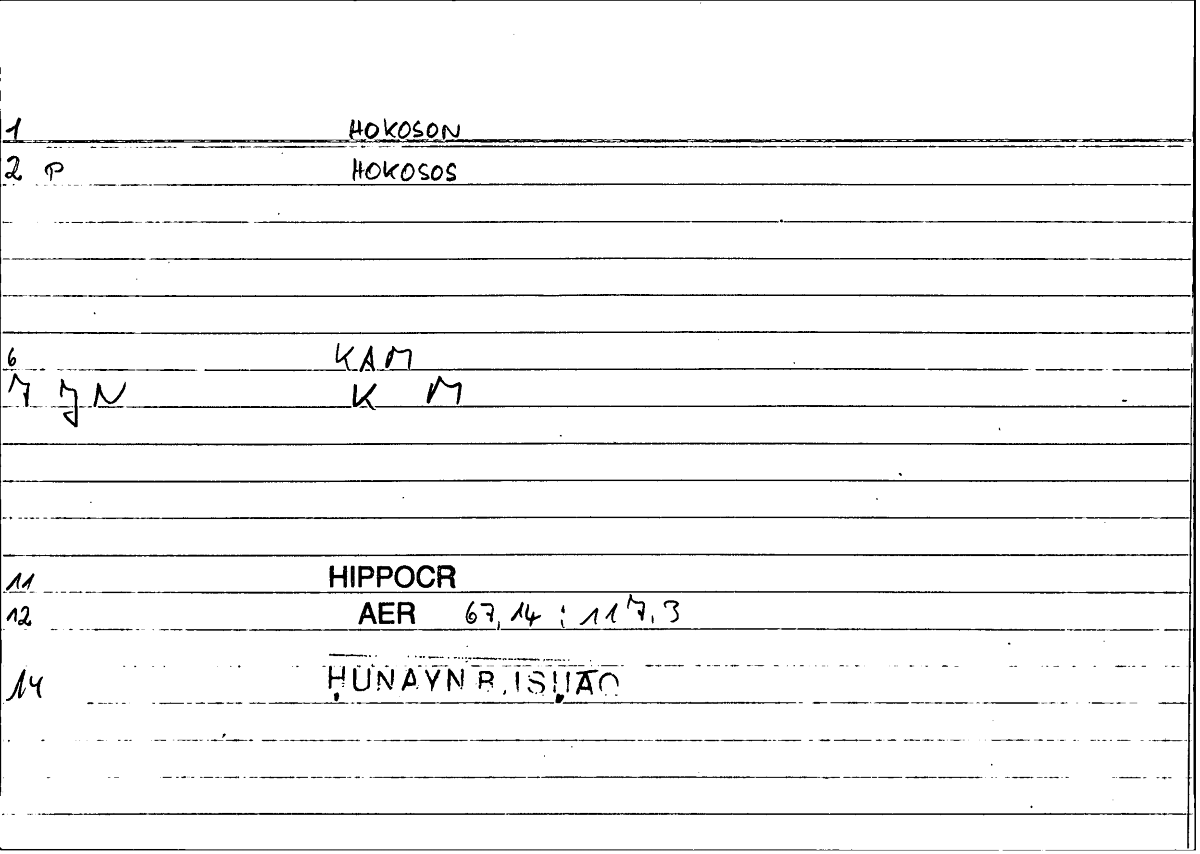 1 HOKOSON
2 P HOKOSOS
6 KAM
7 JN K M
11 HIPPOCR
12 AER 67,14 : 117,3
14 ḤUNAYN B. ISḤĀQ